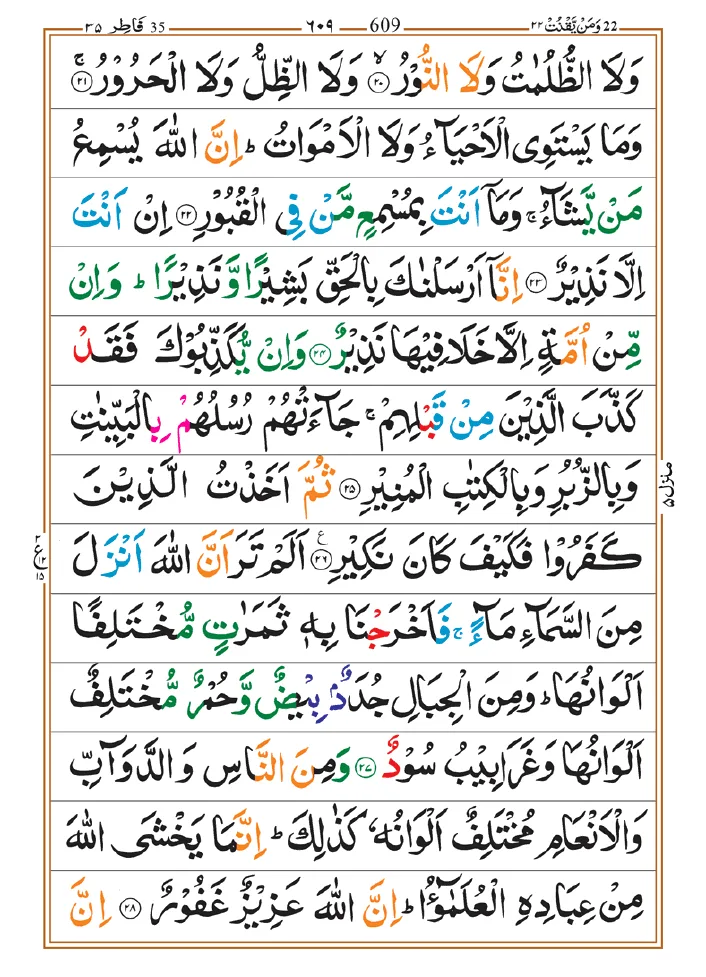 ٣٥ فَاطِر 35 ٦٠٩ 609 ٢٢ وَمَنْ يَّقْنُتْ 22
وَلَا الظُّلُمٰتُ وَلَا النُّوْرُ ۙ‏﴿۲۰﴾ وَلَا الظِّلُّ وَلَا الْحَرُوْرُ ۚ‏﴿۲۱﴾
وَمَا يَسْتَوِى الْاَحْيَآءُ وَلَا الْاَمْوَاتُ ؕ اِنَّ اللّٰهَ يُسْمِعُ
مَنْ يَّشَآءُ ۚ وَمَاۤ اَنْتَ بِمُسْمِعٍ مَّنْ فِى الْقُبُوْرِ ﴿۲۲﴾ اِنْ اَنْتَ
اِلَّا نَذِيْرٌ ﴿۲۳﴾ اِنَّاۤ اَرْسَلْنٰكَ بِالْحَقِّ بَشِيْرًا وَّنَذِيْرًا ؕ وَاِنْ
مِّنْ اُمَّةٍ اِلَّا خَلَا فِيْهَا نَذِيْرٌ ﴿۲۴﴾ وَاِنْ يُّكَذِّبُوْكَ فَقَدْ
كَذَّبَ الَّذِيْنَ مِنْ قَبْلِهِمْ ۚ جَآءَتْهُمْ رُسُلُهُمْ بِالْبَيِّنٰتِ
وَبِالزُّبُرِ وَبِالْكِتٰبِ الْمُنِيْرِ ﴿۲۵﴾ ثُمَّ اَخَذْتُ الَّذِيْنَ
كَفَرُوْا فَكَيْفَ كَانَ نَكِيْرِ ﴿۲۶﴾ ع اَلَمْ تَرَ اَنَّ اللّٰهَ اَنْزَلَ
مِنَ السَّمَآءِ مَآءً ۚ فَاَخْرَجْنَا بِهٖ ثَمَرٰتٍ مُّخْتَلِفًا
اَلْوَانُهَا ؕ وَمِنَ الْجِبَالِ جُدَدٌۢ بِيْضٌ وَّحُمْرٌ مُّخْتَلِفٌ
اَلْوَانُهَا وَغَرَابِيْبُ سُوْدٌ ﴿۲۷﴾ وَمِنَ النَّاسِ وَالدَّوَآبِّ
وَالْاَنْعَامِ مُخْتَلِفٌ اَلْوَانُهٗ كَذٰلِكَ ؕ اِنَّمَا يَخْشَى اللّٰهَ
مِنْ عِبَادِهِ الْعُلَمٰٓؤُا ؕ اِنَّ اللّٰهَ عَزِيْزٌ غَفُوْرٌ ﴿۲۸﴾ اِنَّ
منزل ۵
ع
۱۵